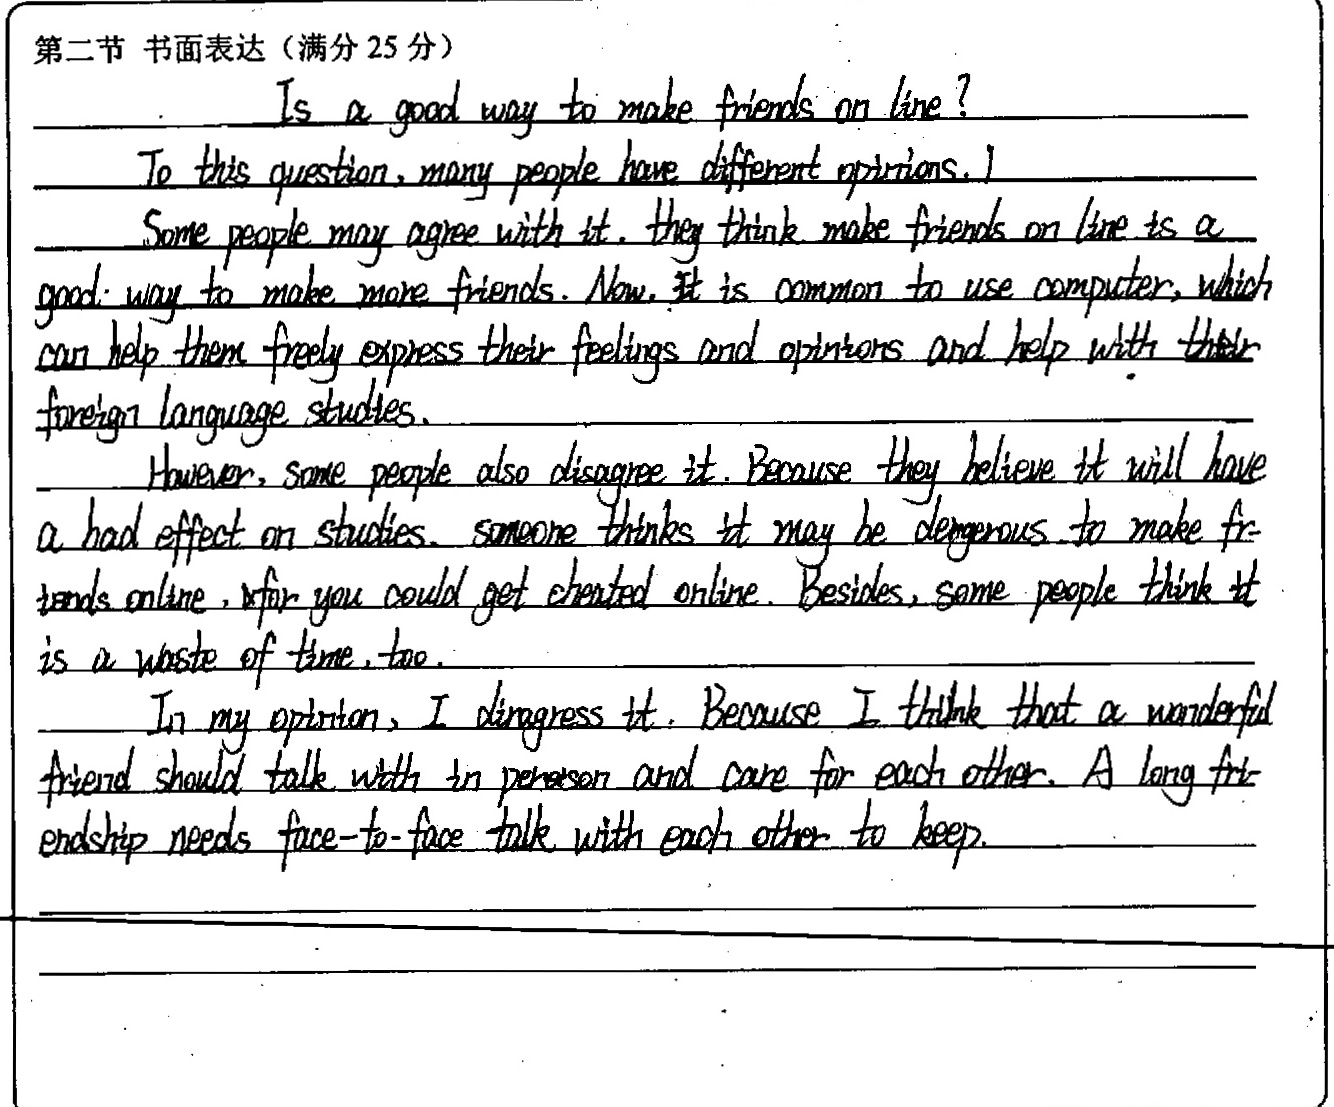 第二节 书面表达（满分 25 分）
Is a good way to make friends on line?
To this question, many people have different opinions.
Some people may agree with it. they think make friends on line is a
good way to make more friends. Now. It is common to use computer, which
can help them freely express their feelings and opinions and help with their
foreign language studies.
However, some people also disagree it. Because they believe it will have
a bad effect on studies. someone thinks it may be dengerous to make fr-
iends online, for you could get cheated online. Besides, some people think it
is a waste of time, too.
In my opinion, I diragress it. Because I think that a wonderful
friend should talk with in person and care for each other. A long fri-
endship needs face-to-face talk with each other to keep.